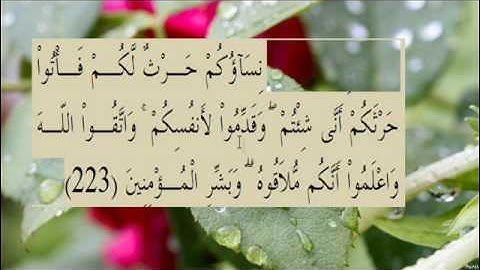 نِسَآؤُكُمْ حَـرْثٌ لَّكُـمْ فَـأْتُواْ
حَرْثَكُمْ أَنَّى شِئْتُمْ ۖ وَقَدِّمُواْ لأَنفُسِكُمْ ۚ وَاتَّقُـواْ اللّـهَ
وَاعْلَمُواْ أَنَّكُم مُّلاَقُوهُ ۗ وَبَشِّرِ الْمُـؤْمِنِينَ (223)